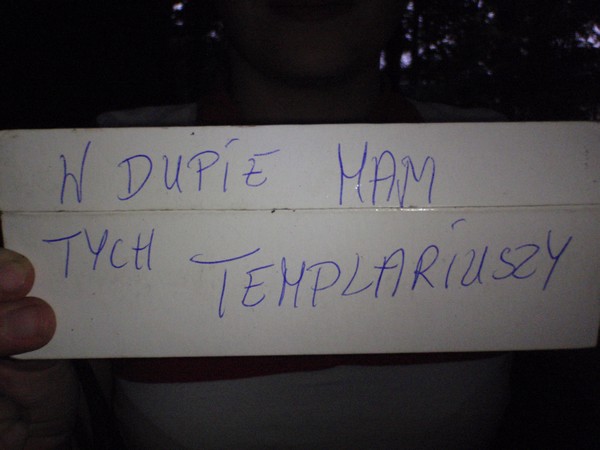 W DUPIE MAM
TYCH TEMPLARIUSZY